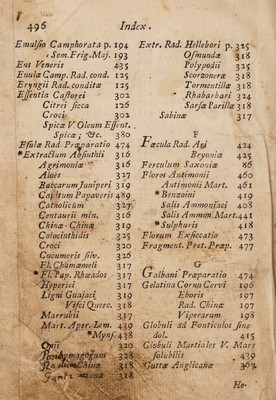 496 Index.
Emulsio Camphorata p. 194
Sem. Frig. Maj. 193
Ens Veneris 435
Enulæ Camp. Rad. cond. 125
Eryngii Rad. conditæ 125
Essentia Castorei 302
Citrei sicca 126
Croci 302
Spicæ V. Oleum Essent.
Spicæ, &c. 380
Esulæ Rad. Præparatio 474
*Extractum Absinthii 316
Agrimoniæ 316
Aloës 327
Baccarum Juniperi 319
Capitum Papaveris 489
Catholicum 327
Centaurii min. 316
Chinæ Chinæ 319
Colocinthidis 325
Croci 320
Cucumeris silv. 326
Fl. Chamæmeli 317
*Fl. Pap. Rhœados 317
Hyperici 317
Ligni Guajaci 319
Visci Querc. 318
Marrubii 317
Mart. Aper. Lem. 439
*Myns. 438
Opii 320
328
Chinæ 318
318
Extr. Rad. Hellebori p. 325
Osmundæ 318
Polypodii 325
Scorzoneræ 318
Tormentillæ 318
Rhabarbari 324
Sarsæ Parillæ 318
Sabinæ 317
F
Fæcula Rad. Ari 424
Bryoniæ 425
Ferculum Saxoniæ 86
Flores Antimonii 460
Antimonii Mart. 461
*Benzoini 419
Salis Ammoniaci 408
Salis Ammon. Mart. 441
*Sulphuris 418
Florum Exsiccatio 473
Fragment. Pret. Præp. 477
G
Galbani Præparatio 474
Gelatina Cornu Cervi 196
Eboris 197
Rad. Chinæ 197
Viperarum 198
Globuli ad Fonticulos sine
dol. 415
Globuli Martiales V. Mars
solubilis 439
Guttæ Anglicanæ 367
He-